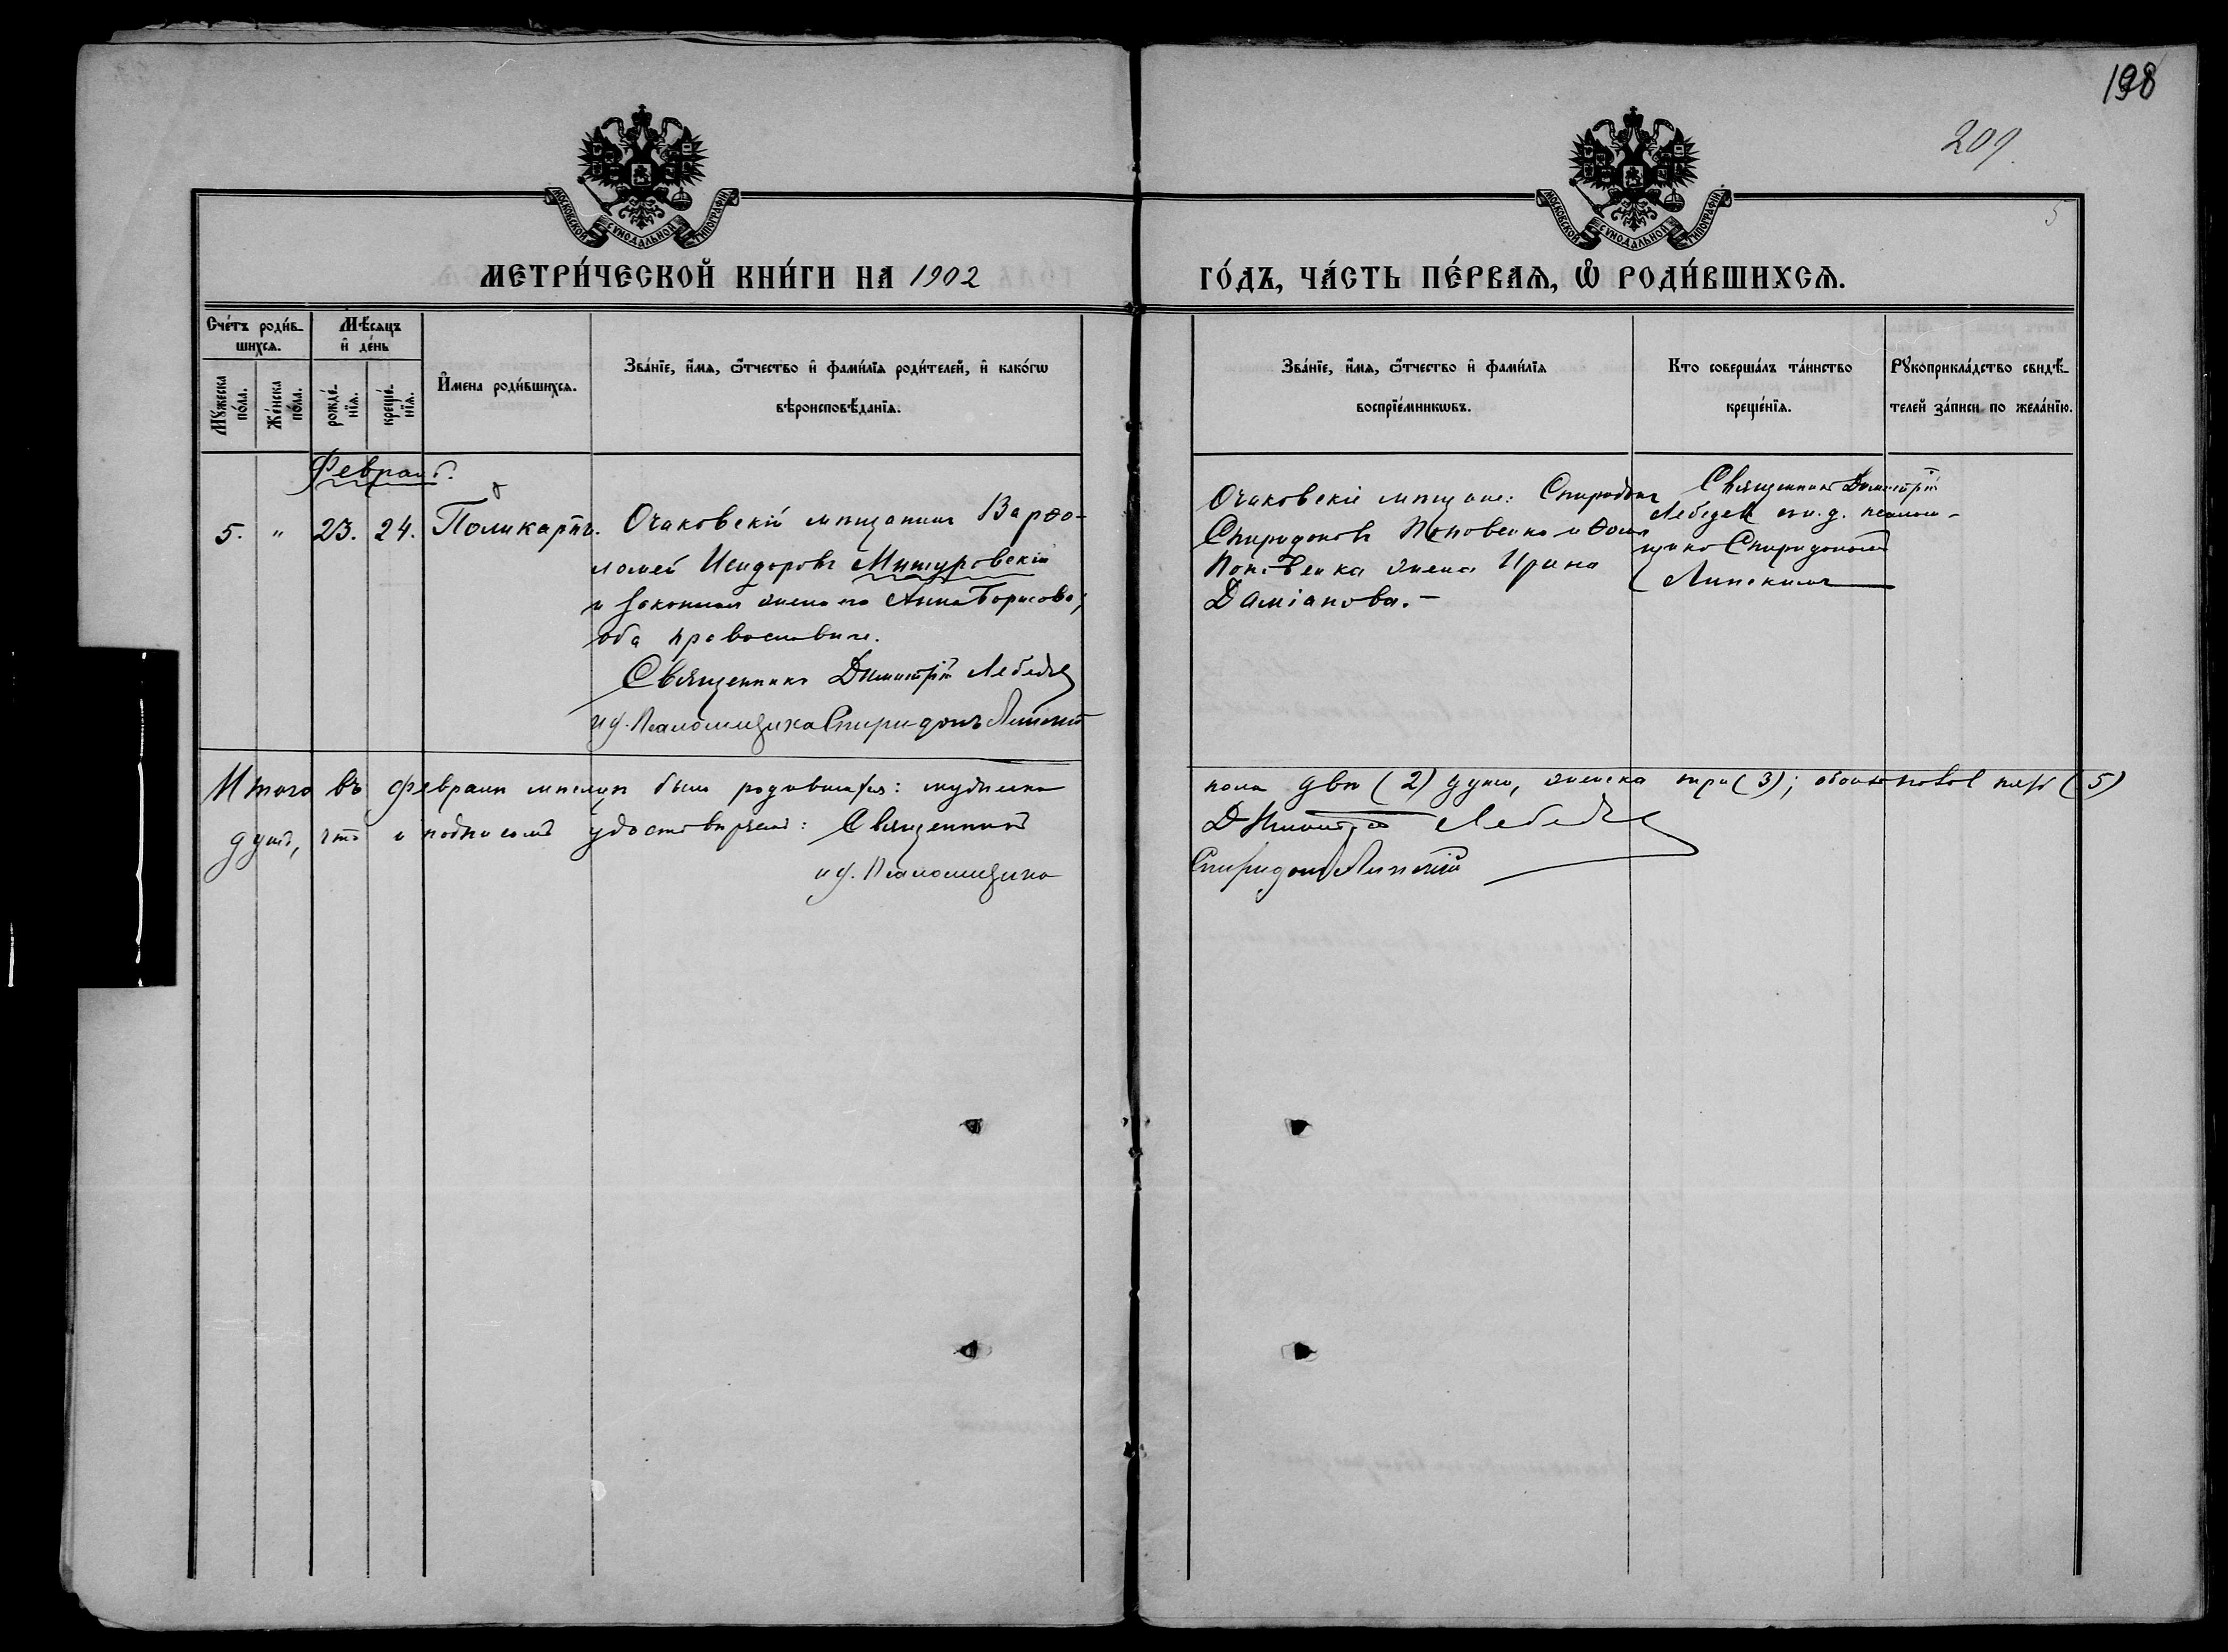 198
209.
5
МОСКОВСКОЙ СУНОДАЛЬНОЙ ТИПОГРАФІИ
МОСКОВСКОЙ СУНОДАЛЬНОЙ ТИПОГРАФІИ
МЕТРИ́ЧЕСКОЙ КНИ́ГИ НА 1902
ГО́ДЪ, ЧА́СТЬ ПЕ́РВАЯ, Ѡ РОДИ́ВШИХСЯ.
Сче́тъ роди́в-
шихся.
Мꙋ́жеска по́ла.
Же́нска по́ла.
Мѣ́сяцъ и де́нь
рожде́-нїя.
креще́-нїя.
И́мена роди́вшихся.
Зва́нїе, и́мя, ѻ́тчество и фами́лїя роди́телей, и како́гѡ
вѣроисповѣ́данїя.
Зва́нїе, и́мя, ѻ́тчество и фами́лїя
воспрїе́мникѡвъ.
Кто соверша́лъ та́инство
креще́нїя.
Рꙋкоприкла́дство свидѣ́-
телей за́писи по жела́нїю.
Февраль.
5. " 23. 24. Поликарпъ.
Очаковскій мѣщанинъ Варѳо-
ломей Исидоровъ Мишуровскій
и законная жена его Анна Борисова;
оба православные.
Священникъ Димитрій Лебедевъ
и д. Псаломщика Спиридонъ Липскій
Очаковскіе мѣщане: Спиридонъ
Спиридоновъ Поповенко и
Поповенка жена Ирина
Даміанова.–
Священникъ Димитрій
Лебедевъ съ и. д. псалом-
щика Спиридономъ
Липскимъ
Итого въ Февралѣ мѣсяцѣ было родившихся: мужеска
пола двѣ (2) души, женска три (3); обоего пола пять (5)
душъ, что и подписомъ удостовѣряемъ: Священникъ
Димитрій Лебедевъ
и д. Псаломщика
Спиридонъ Липскій